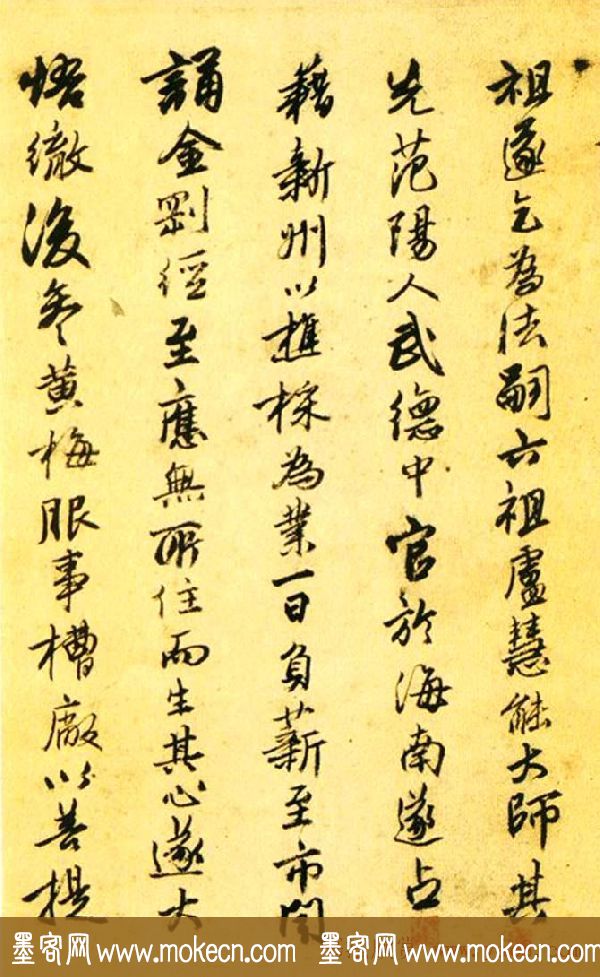 祖遂乞為法嗣六祖盧慧能大師其
先范陽人武德中官於海南遂占
藉新州以樵採為業一日負薪至市聞
誦金剛經至應無所住而生其心遂大
悟徹後參黃梅服事槽廠以菩提
墨客网 www.mokecn.com 墨客网 www.mokecn.com